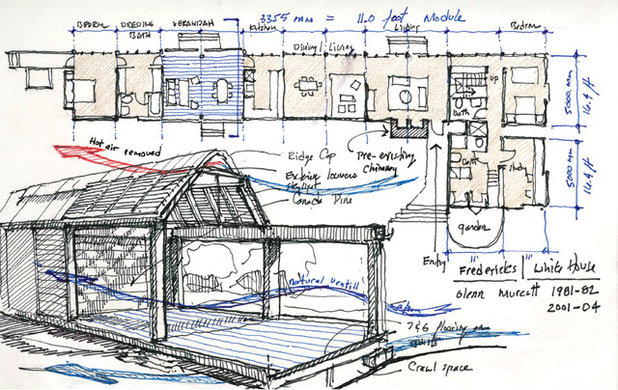 3355 mm = 11.0 foot Module
BEDRM
DRESING
BATH
VERANDAH
Kitchen
Dining/Living
Living
Bedrm
up
Bath
5000 mm
16.4 ft
Hot air removed
Ridge Cap
Existing louvers
Canada Pine
Pre-existing
Chimney
Bath
Study
5000 mm
16.4 ft
garden
Entry
11'
11'
Fredericks/White House
Glenn Murcutt 1981-82
2001-04
natural ventill
T&G flooring on
joists
Crawl space